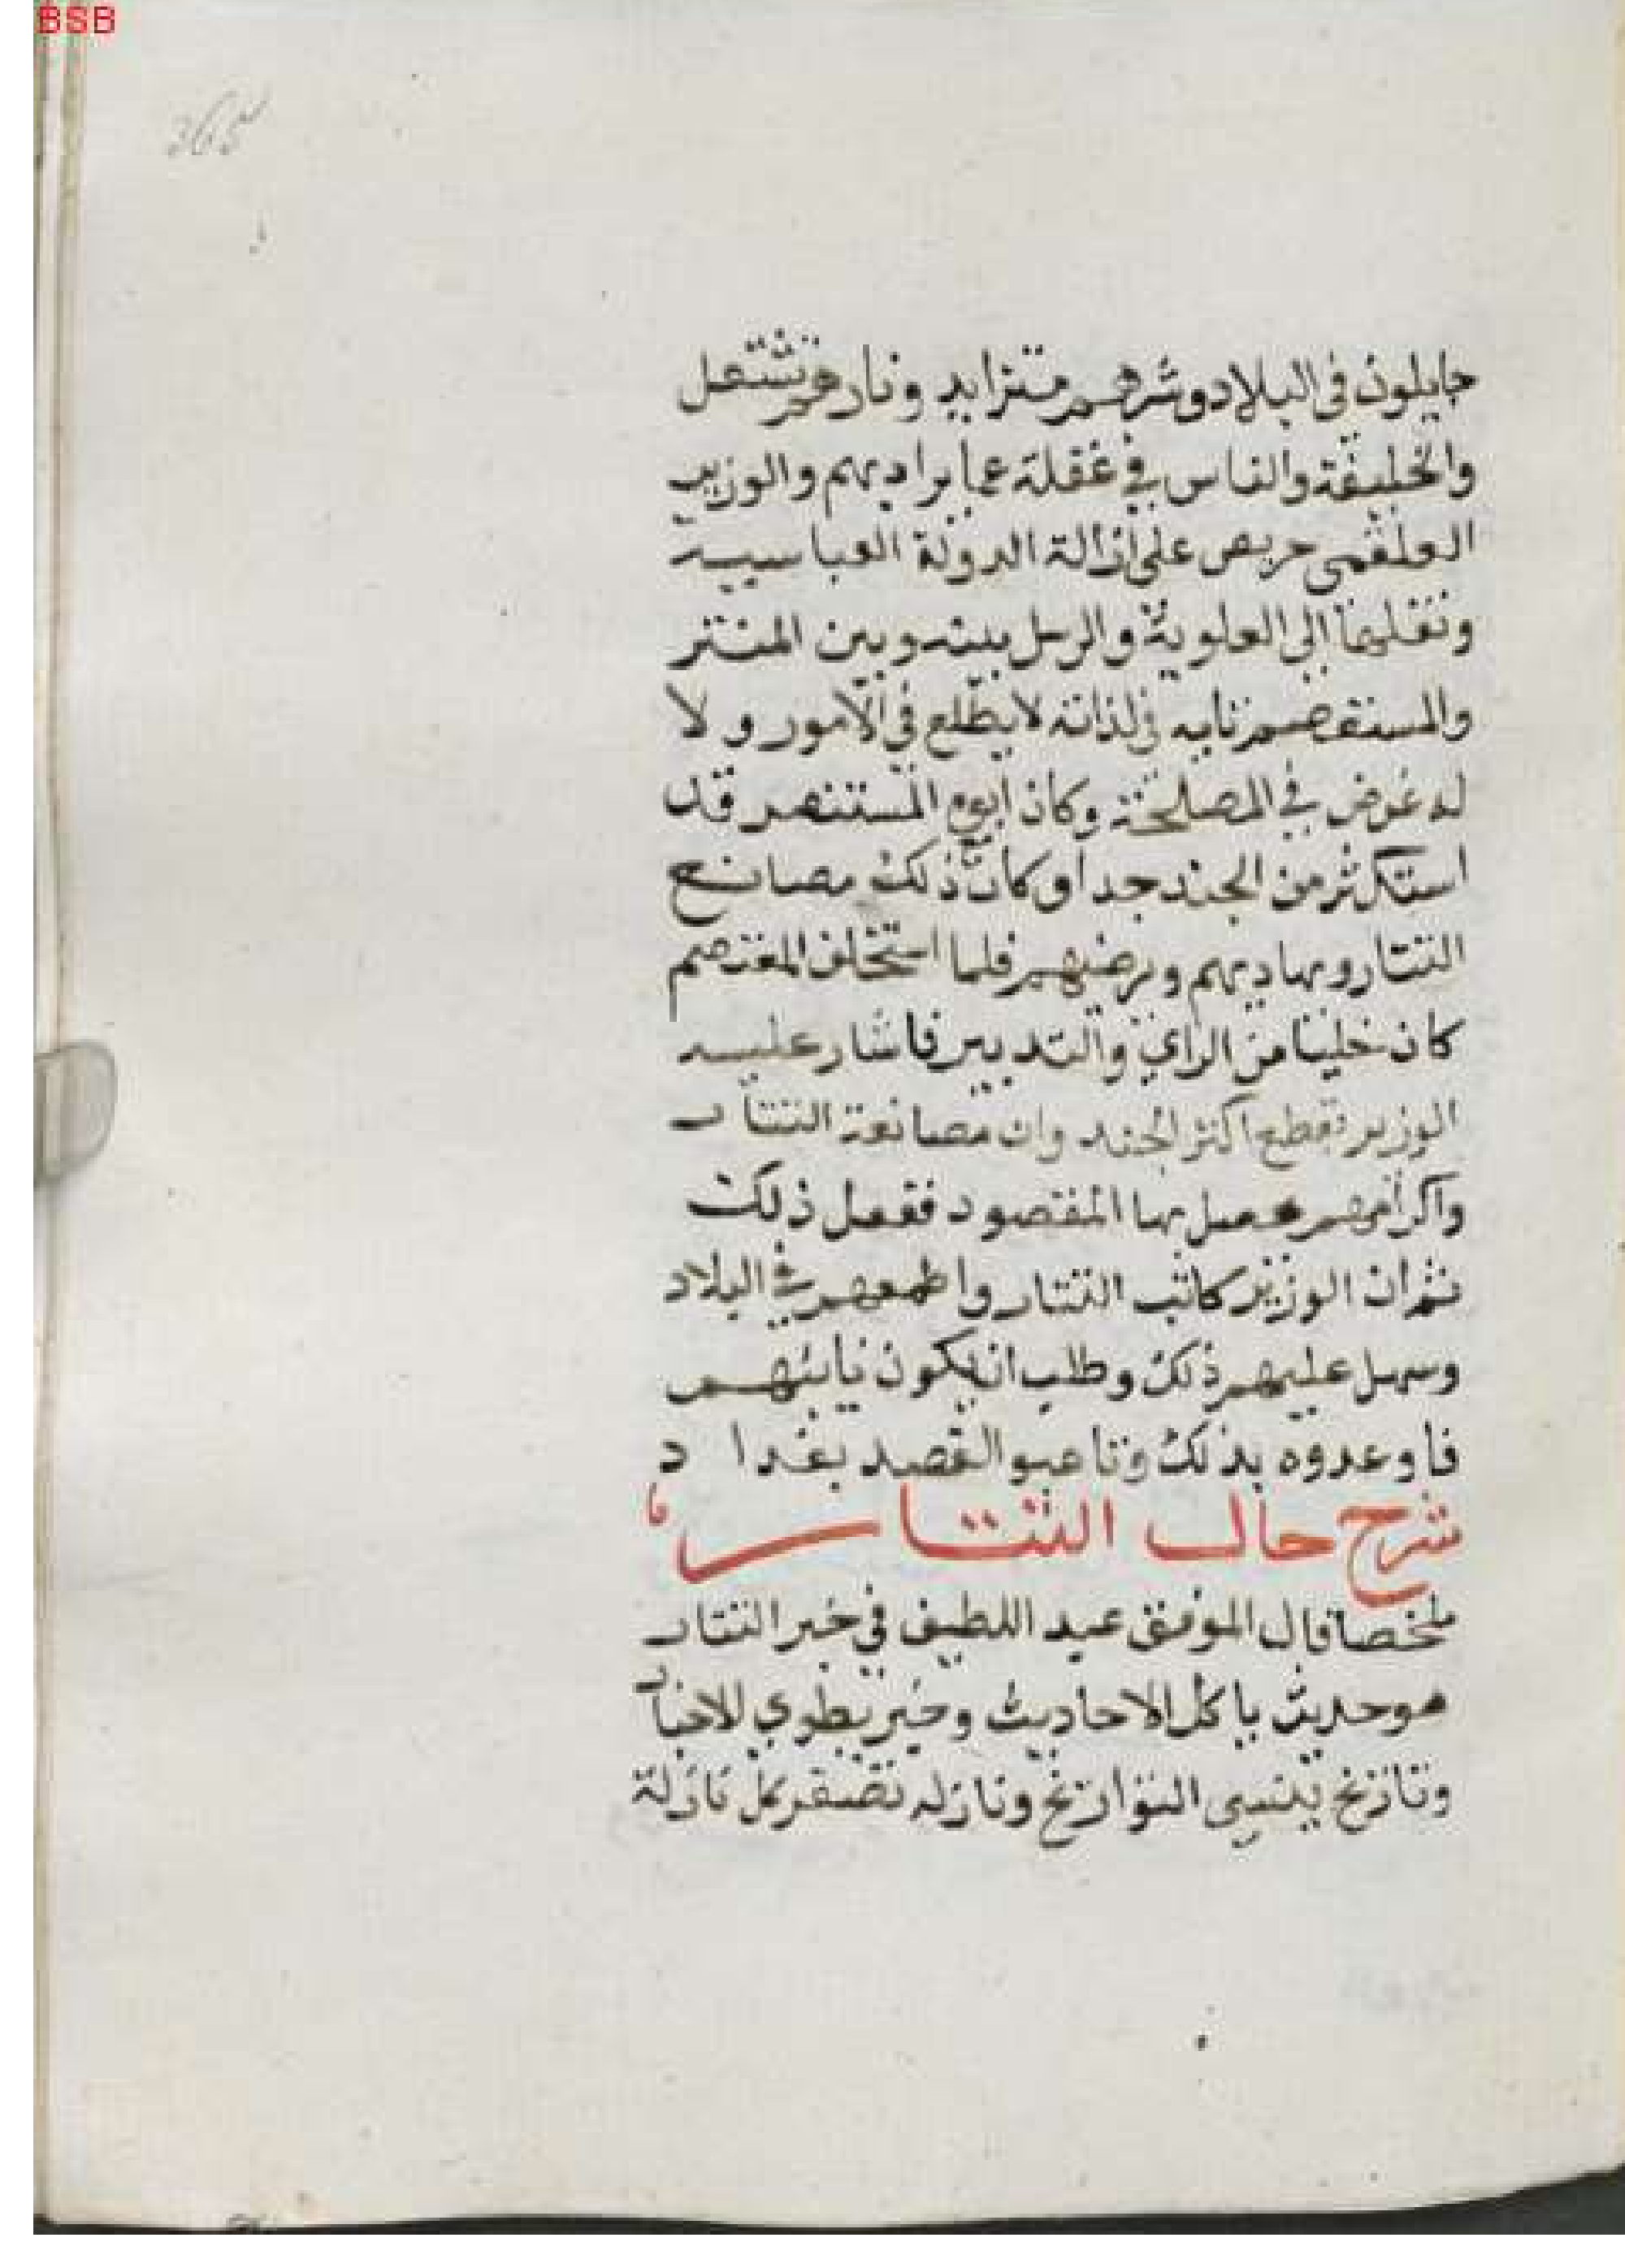 BSB
365
جايلون في البلاد وشرهم متزايد ونارهم تشتعل
والخليفة والناس في غفلة عما يراد بهم والوزير
العلقمي حريص على ازالة الدولة العباسيية
ونقلها الى العلوية والرسل بينه وبين التتر
والمستعصم تايه في لذاته لا يطلع في الامور ولا
له غرض في المصلحة وكان ابوه المستنصر قد
استكثر من الجند جدا وكان ذلك مصانع
التتار ويهاديهم ويرضيهم فلما استخلف المعتصم
كان خليا من الراي والتدبير فاشار عليه
الوزير بقطع اكثر الجند وان مصانعة التتار
واكرامهم يحصل بها المقصود ففعل ذلك
ثم ان الوزير كاتب التتار واطمعهم في البلاد
وسهل عليهم ذلك وطلب ان يكون نائبهم
فاوعدوه بذلك وتاهبوا القصد بغداد
شرح حال التتار
ملخصا قال الموفق عبد اللطيف في خبر التتار
هو حديث ياكل الاحاديث وخبر يطوي الاخبار
وتاريخ ينسي التواريخ ونازله تصغر كل نازلة